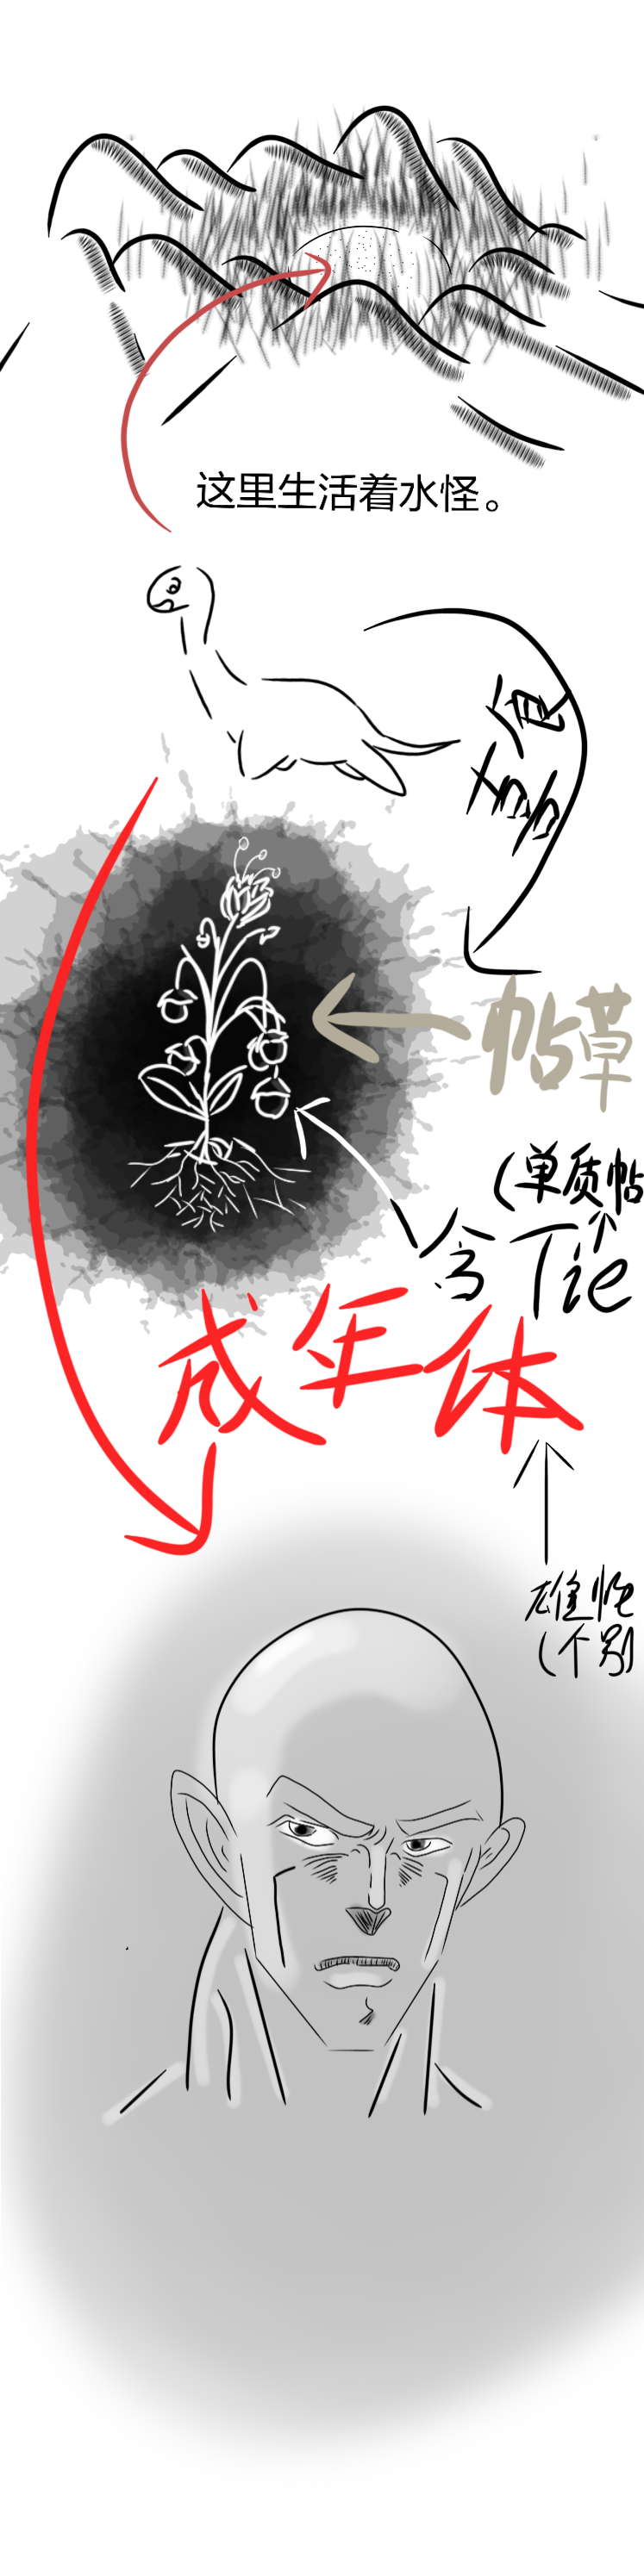 这里生活着水怪。
食
帖草
(单质帖
含Tie
成年体
雄
(个别